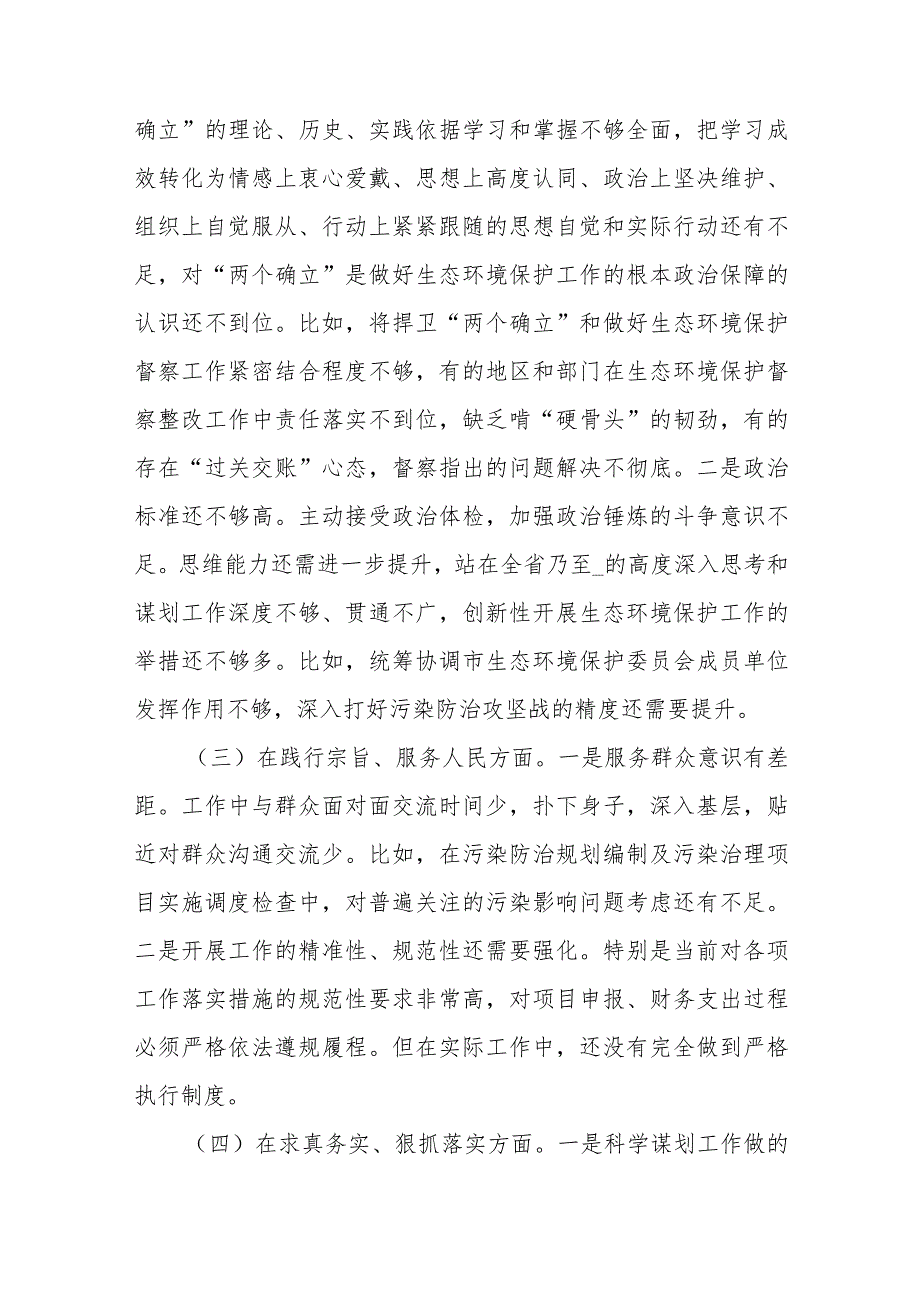 确立”的理论、历史、实践依据学习和掌握不够全面，把学习成
效转化为情感上衷心爱戴、思想上高度认同、政治上坚决维护、
组织上自觉服从、行动上紧紧跟随的思想自觉和实际行动还有不
足，对“两个确立”是做好生态环境保护工作的根本政治保障的
认识还不到位。比如，将捍卫“两个确立”和做好生态环境保护
督察工作紧密结合程度不够，有的地区和部门在生态环境保护督
察整改工作中责任落实不到位，缺乏啃“硬骨头”的韧劲，有的
存在“过关交账”心态，督察指出的问题解决不彻底。二是政治
标准还不够高。主动接受政治体检，加强政治锤炼的斗争意识不
足。思维能力还需进一步提升，站在全省乃至_的高度深入思考和
谋划工作深度不够、贯通不广，创新性开展生态环境保护工作的
举措还不够多。比如，统筹协调市生态环境保护委员会成员单位
发挥作用不够，深入打好污染防治攻坚战的精度还需要提升。
（三）在践行宗旨、服务人民方面。一是服务群众意识有差
距。工作中与群众面对面交流时间少，扑下身子，深入基层，贴
近对群众沟通交流少。比如，在污染防治规划编制及污染治理项
目实施调度检查中，对普遍关注的污染影响问题考虑还有不足。
二是开展工作的精准性、规范性还需要强化。特别是当前对各项
工作落实措施的规范性要求非常高，对项目申报、财务支出过程
必须严格依法遵规履程。但在实际工作中，还没有完全做到严格
执行制度。
（四）在求真务实、狠抓落实方面。一是科学谋划工作做的